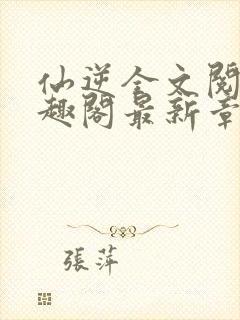 仙逆全文閱
趣閣最新章
張萍